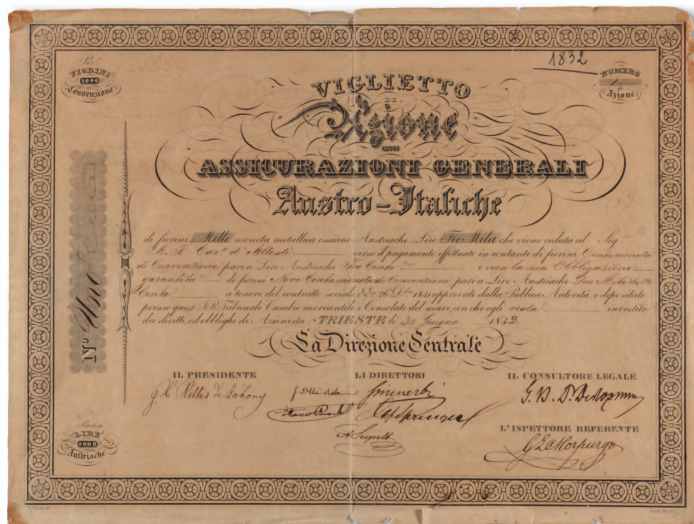 1832
Per
FIORINI
1000
Convenzione
NUMERO
Azione
VIGLIETTO
DI
Azione
ASSICURAZIONI GENERALI
Austro-Italiche
di fiorini Mille moneta metallica ossiano Austriache Lire Tre Mila che viene valuta al Sig
verso il pagamento effettuato in contante di fiorini Cento moneta
di Convenzione pari a Lire Austriache Tre Cento e verso la sua Obbligazione
garantita di fiorini Nove Cento moneta di Convenzione pari a Lire Austriache Due Mila Sette
Cento a tenore del contratto sociale 26 Dbre 1831 approvato dalla Pubblica Autorità, e depositato
presso quest' I.R. Tribunale Cambio mercantile e Consolato del mare, con che egli resta investito
dei diritti, ed obblighi di Azionista. TRIESTE li 30 Giugno 1832.
No Uno
La Direzione Centrale
IL PRESIDENTE
LI DIRETTORI
IL CONSULTORE LEGALE
L'ISPETTORE REFERENTE
G L Morpurgo
LIRE
Austriache